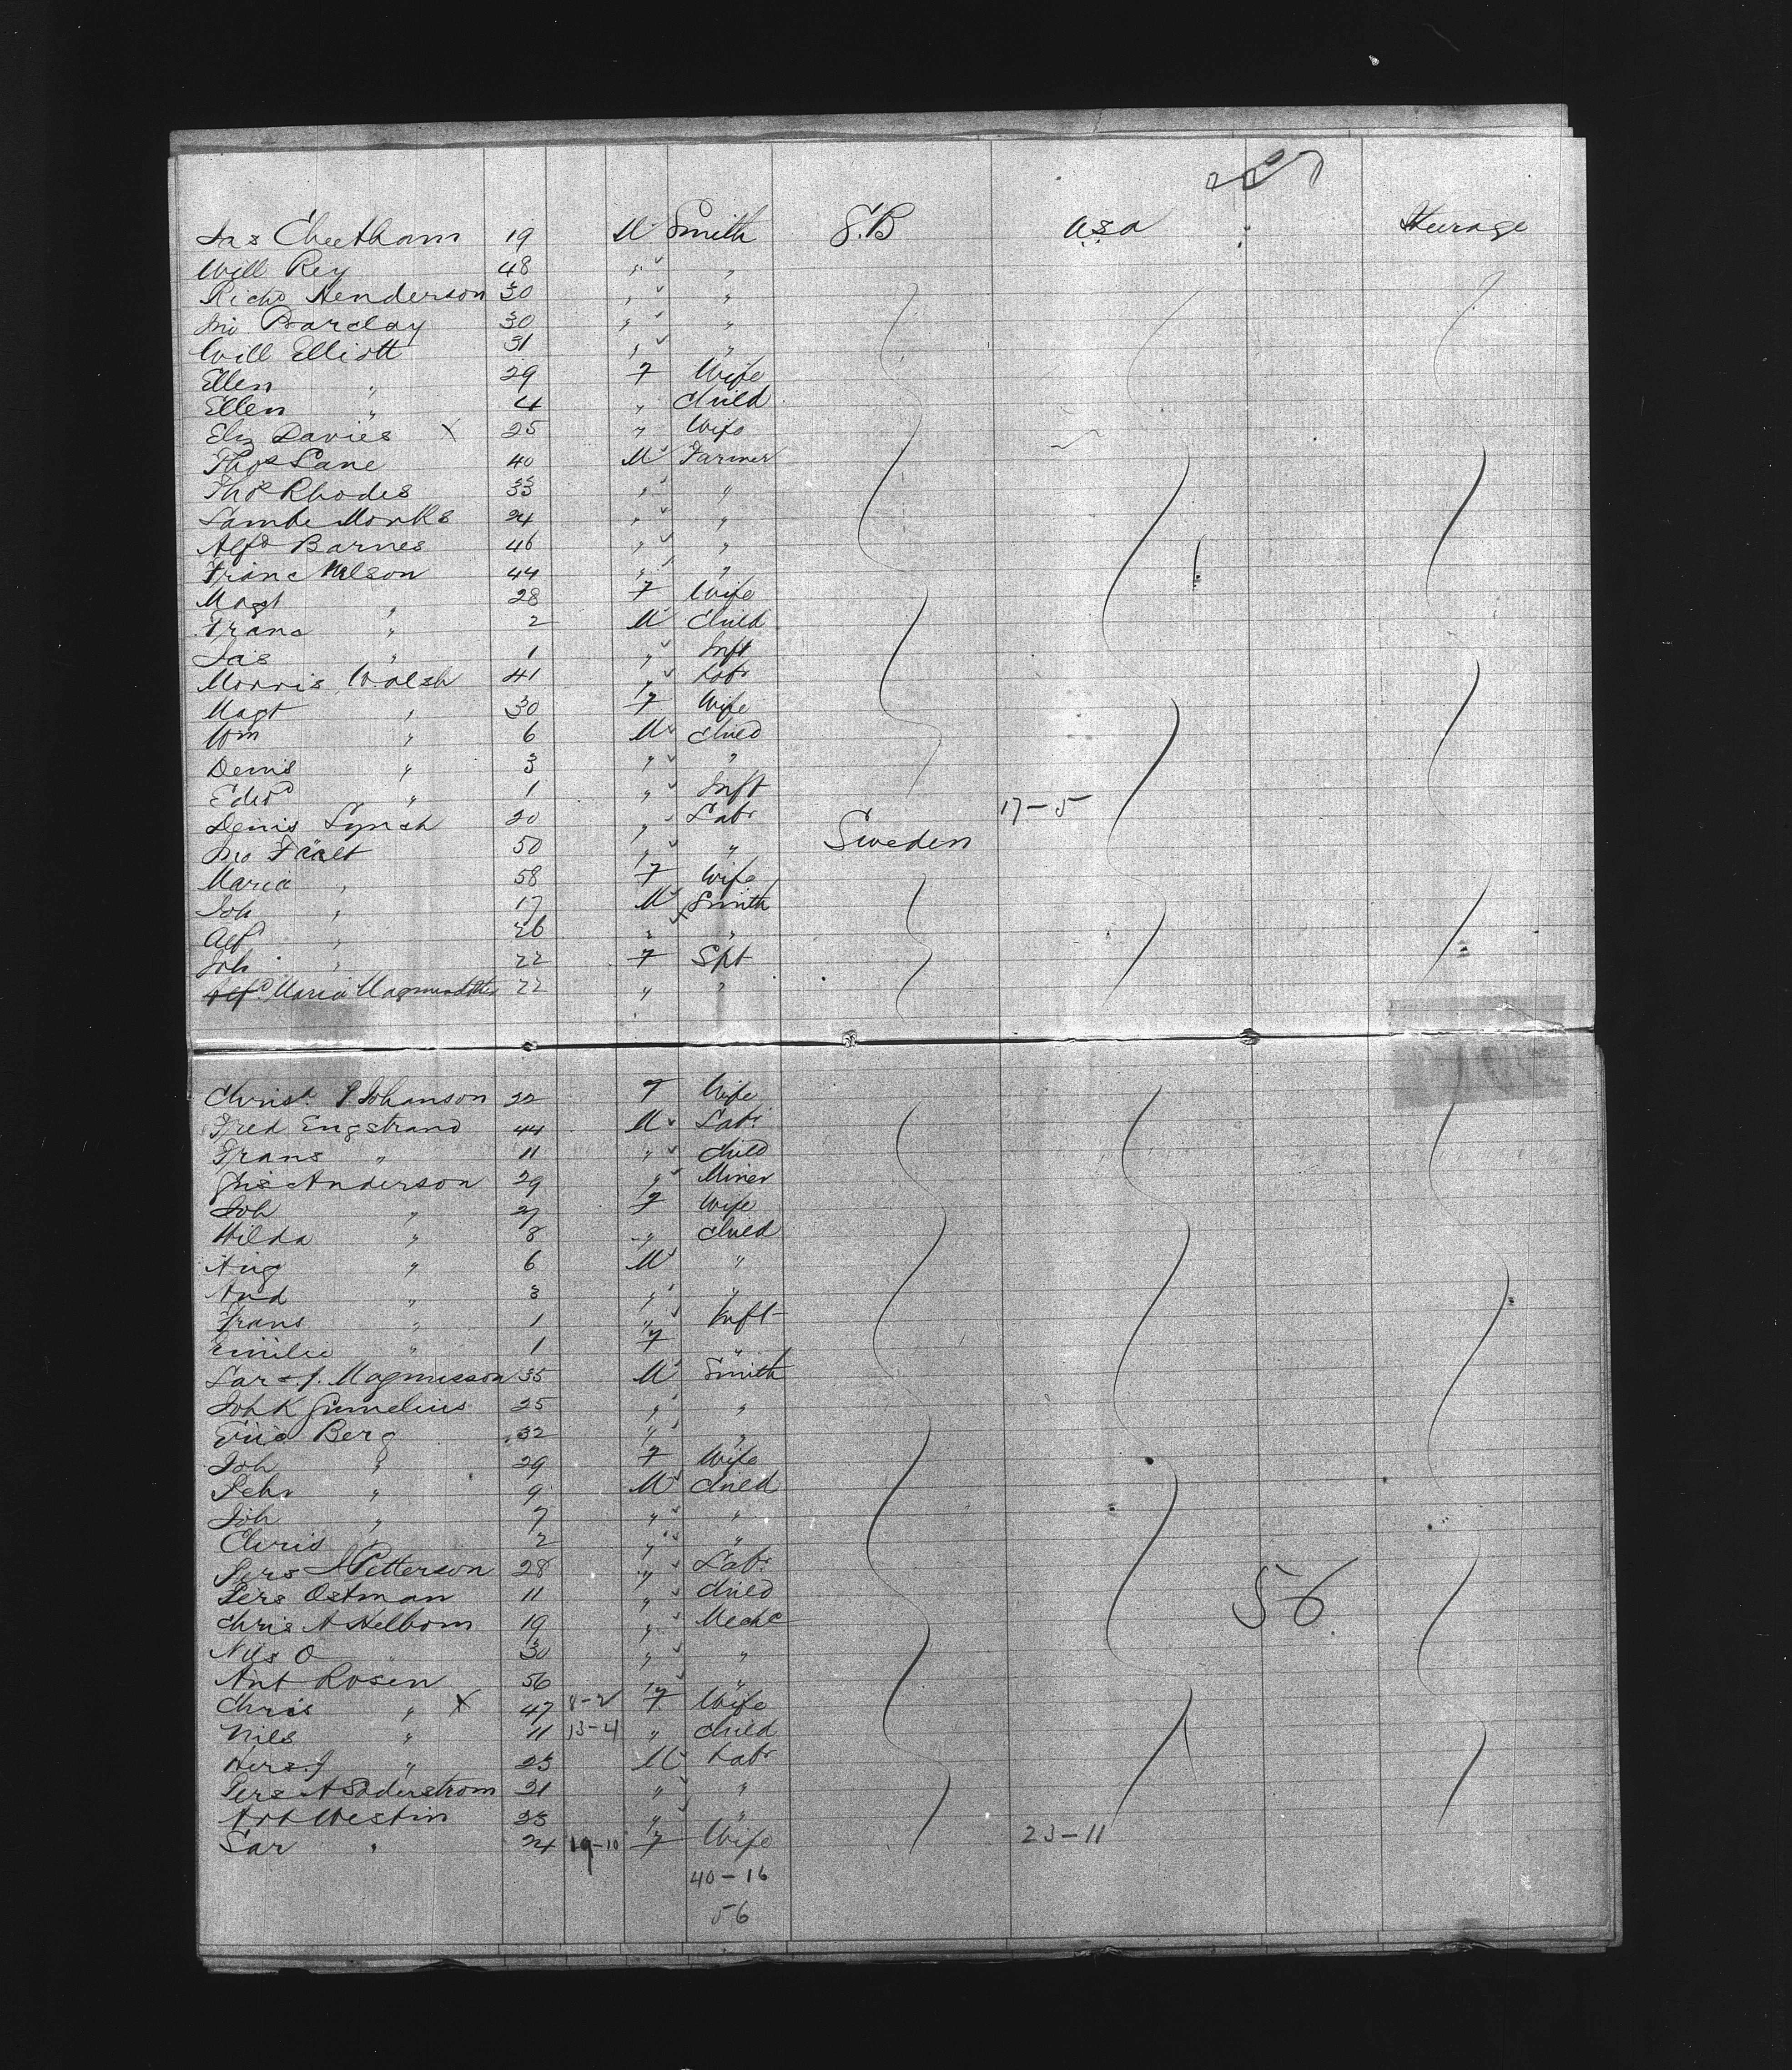 Jas Cheetham 19 M Smith G.B USA Steerage
Will Rey 48 " " "
Richd Henderson 30 " "
Jno Barclay 30 " "
Will Elliott 31 " "
Ellen " 29 F Wife
Ellen " 4 " child
Eliz Davies X 25 " Wife
Thos Lane 40 M Farmer
Thos Rhodes 33 " "
Lambe Monks 24 " "
Alfd Barnes 46 " "
Franc Nelson 44 " "
Magt " 28 F Wife
Franc " 2 M child
Jas " 1 " Inft
Morris Walsh 41 " Labr
Magt " 30 F Wife
Wm " 6 M child
Denis " 3 " "
Edwd " 1 " Inft
Denis Lynch 20 " Labr 17-5
Jno Fäält 50 " " Sweden
Maria " 58 F Wife
Joh " 17 M Smith
Alfd " 26 " "
Joh " 22 F Spt
Maria 22 " "
Christ P Johanson 22 F Wife
Fred Engstrand 44 M Labr
Frans " 11 " child
Anderson 29 " Miner
Joh " 27 F Wife
Hilda " 8 " child
Aug " 6 M "
And " 3 " "
Frans " 1 " Inft
Emilie " 1 F "
Lars J. Magnusson 35 M Smith
Joh K Gumelius 25 " "
Eric Berg 32 " "
Joh " 29 F Wife
Pehr " 9 M child
Joh " 7 " "
Chris " 2 " "
Pers J Petterson 28 " Labr
Pers Ostman 11 " child 56
Chris A Helbom 19 " Mechc
Nils O " 30 " "
Ant Rosen 56 " "
Chris " X 47 8-2 F Wife
Nils " 11 13-4 " child
Hers J " 23 M Labr
Pers A Soderstrom 21 " "
Westin 23 " "
Sar " 24 19-10 F Wife 23-11
40-16
56